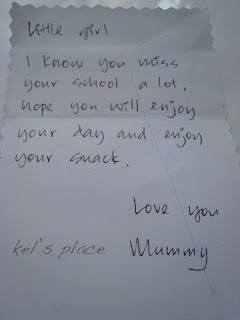 Little girl
I know you miss
your school a lot.
hope you will enjoy
your day and enjoy
your snack.
Love you
kel's place Mummy